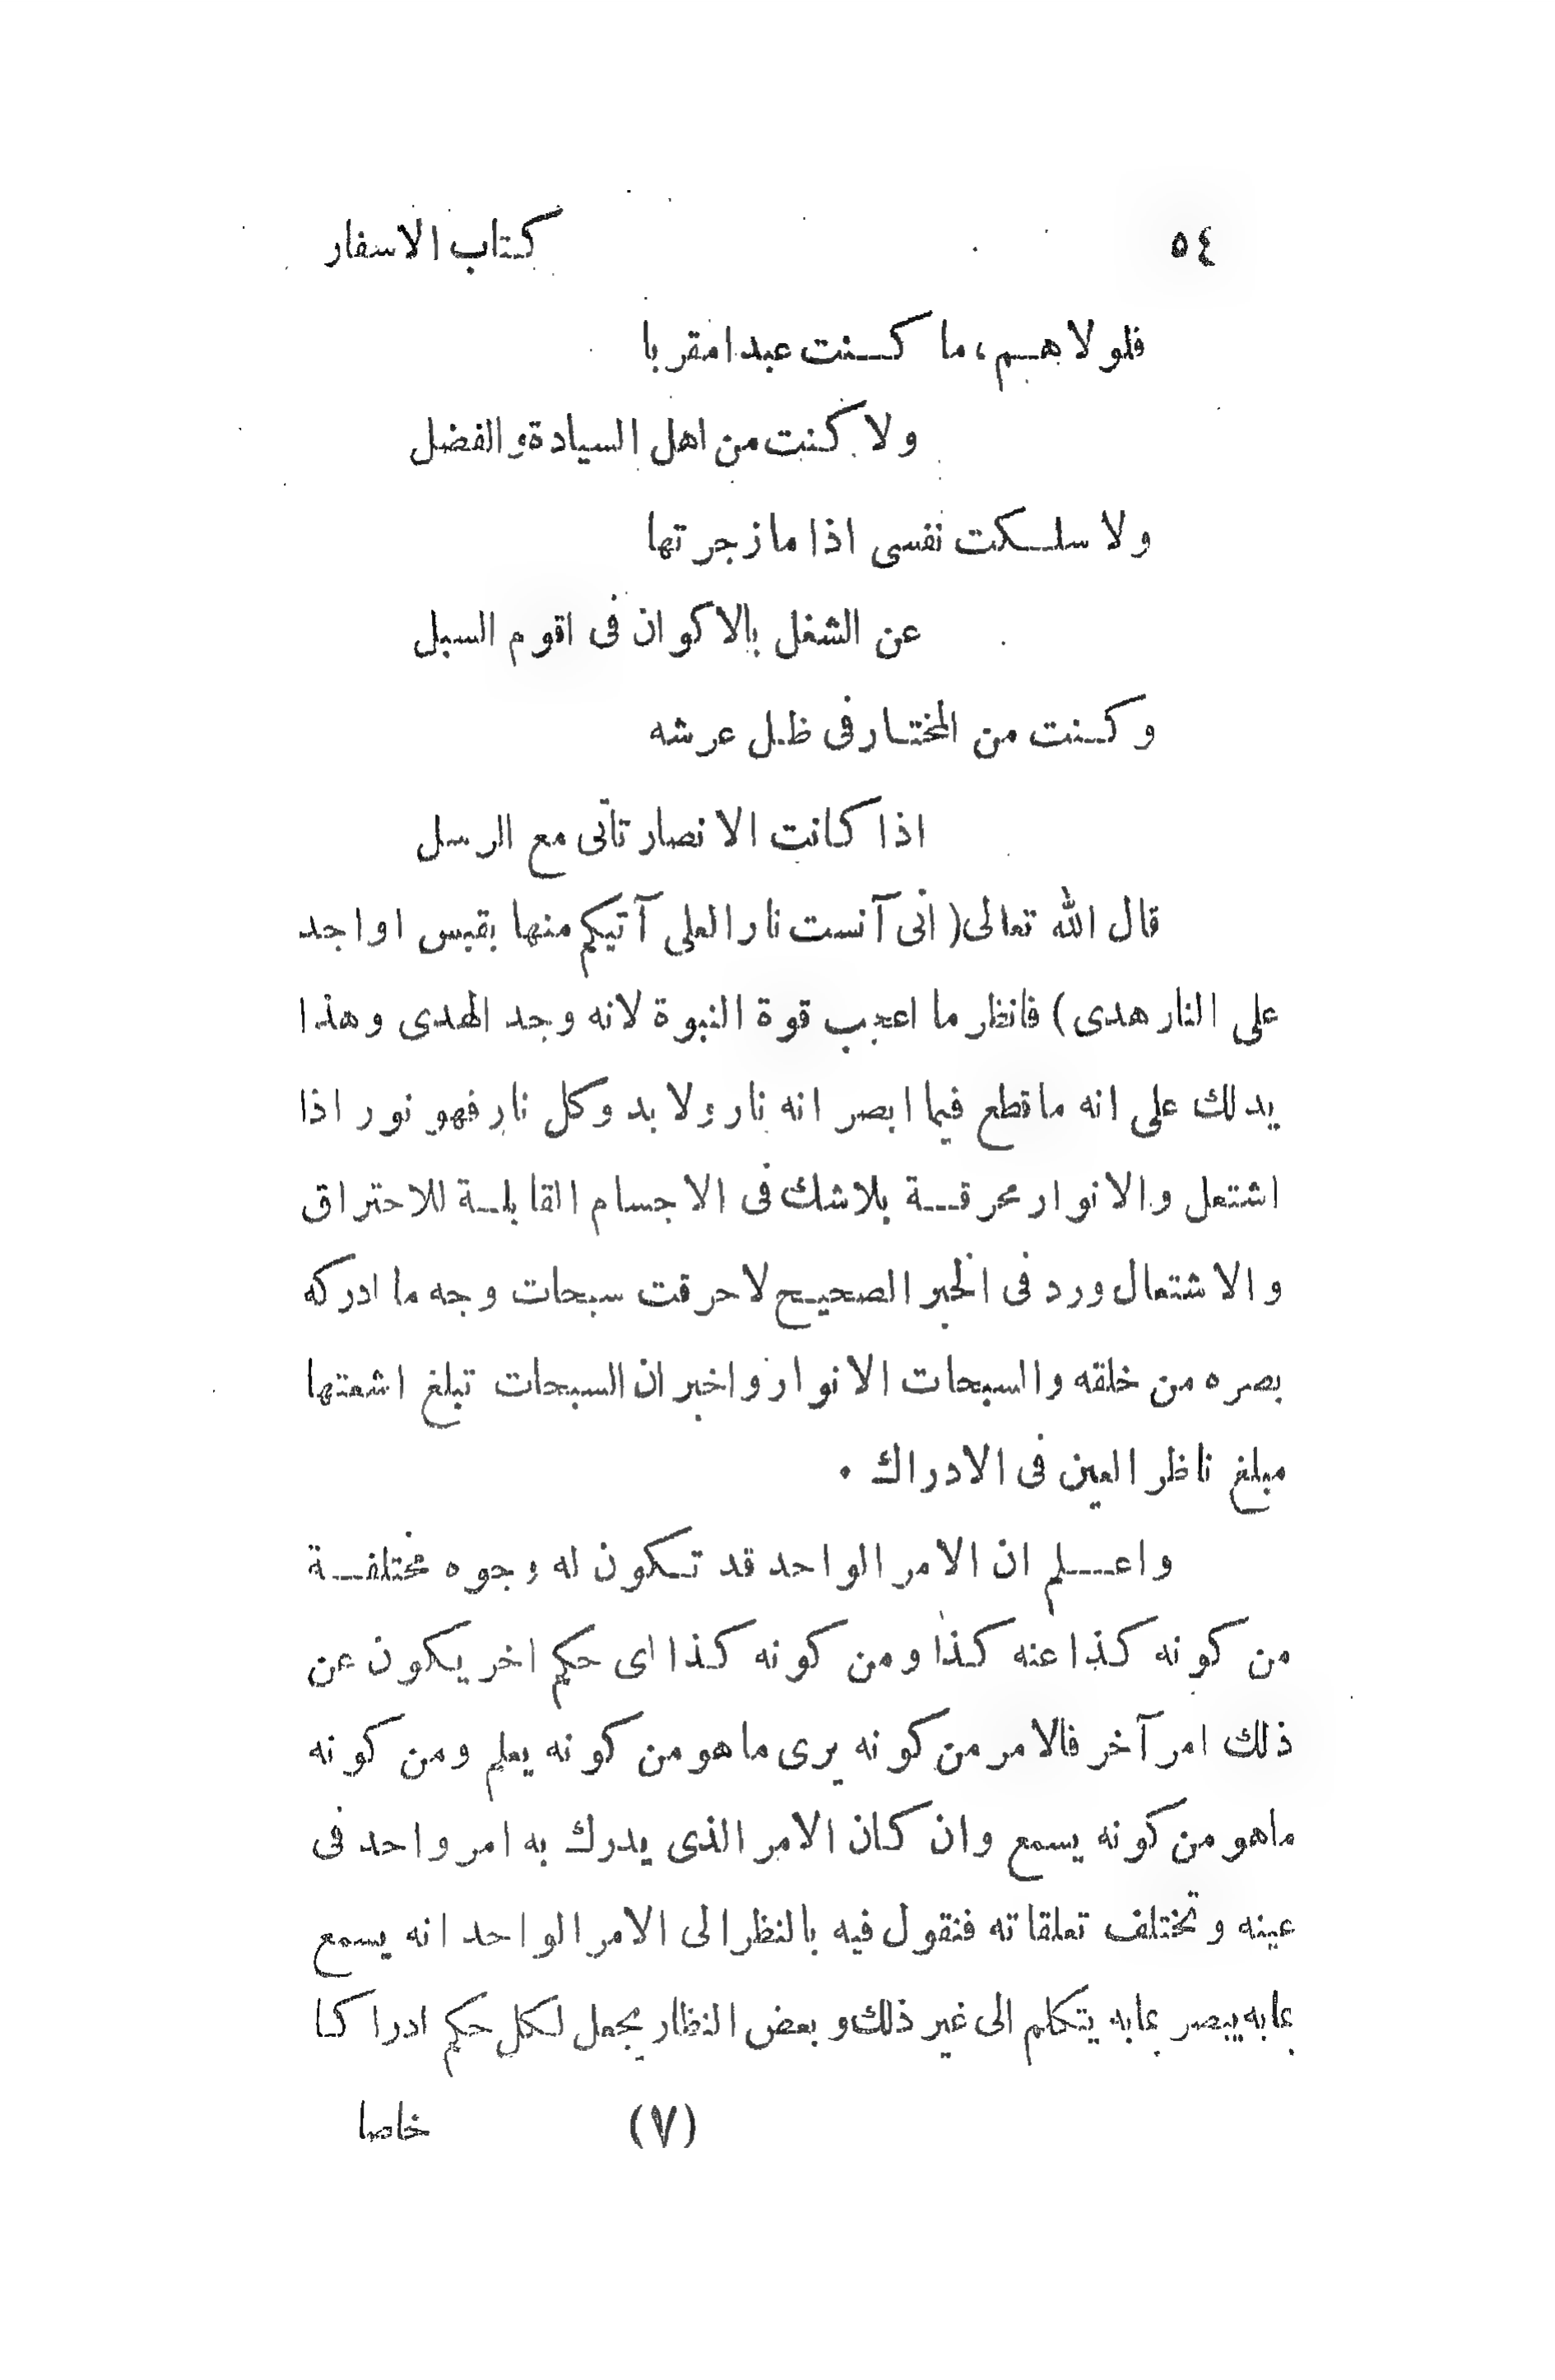 ٥٤ كتاب الاسفار
فلولاهم، ما كنت عبدا مقربا
ولا كنت من اهل السيادة والفضل
ولا سلكت نفسى اذا ما زجرتها
عن الشغل بالاكوان فى اقوم السبل
وكنت من المختار فى ظل عرشه
اذا كانت الانصار تأتى مع الرسل
قال الله تعالى (انى آنست نارا لعلى آتيكم منها بقبس او اجد
على النار هدى) فانظر ما اعجب قوة النبوة لانه وجد الهدى وهذا
يدلك على انه ما قطع فيما ابصر انه نار ولا بد وكل نار فهو نور اذا
اشتعل والانوار محرقة بلاشك فى الاجسام القابلة للاحتراق
والاشتعال ورد فى الخبر الصحيح لاحرقت سبحات وجهه ما ادركه
بصره من خلقه والسبحات الانوار واخبر ان السبحات تبلغ اشعتها
مبلغ ناظر العين فى الادراك .
واعلم ان الامر الواحد قد تكون له وجوه مختلفة
من كونه كذا عنه كذا ومن كونه كذا اى حكم اخر يكون عن
ذلك امر آخر فالامر من كونه يرى ما هو من كونه يعلم ومن كونه
ماهو من كونه يسمع وان كان الامر الذى يدرك به امر واحد فى
عينه وتختلف تعلقاته فنقول فيه بالنظر الى الامر الواحد انه يسمع
بما به يبصر بما به يتكلم الى غير ذلك وبعض النظار يجعل لكل حكم ادراكا
(٧) خاصا